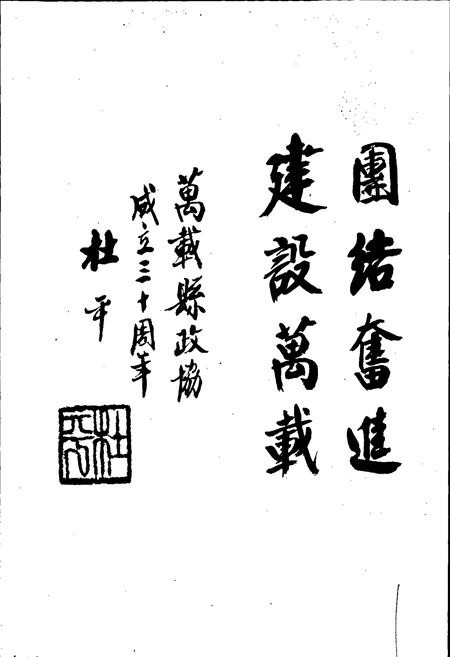 團结奮進
建設萬載
萬載縣政協
成立三十周年
杜平
杜平